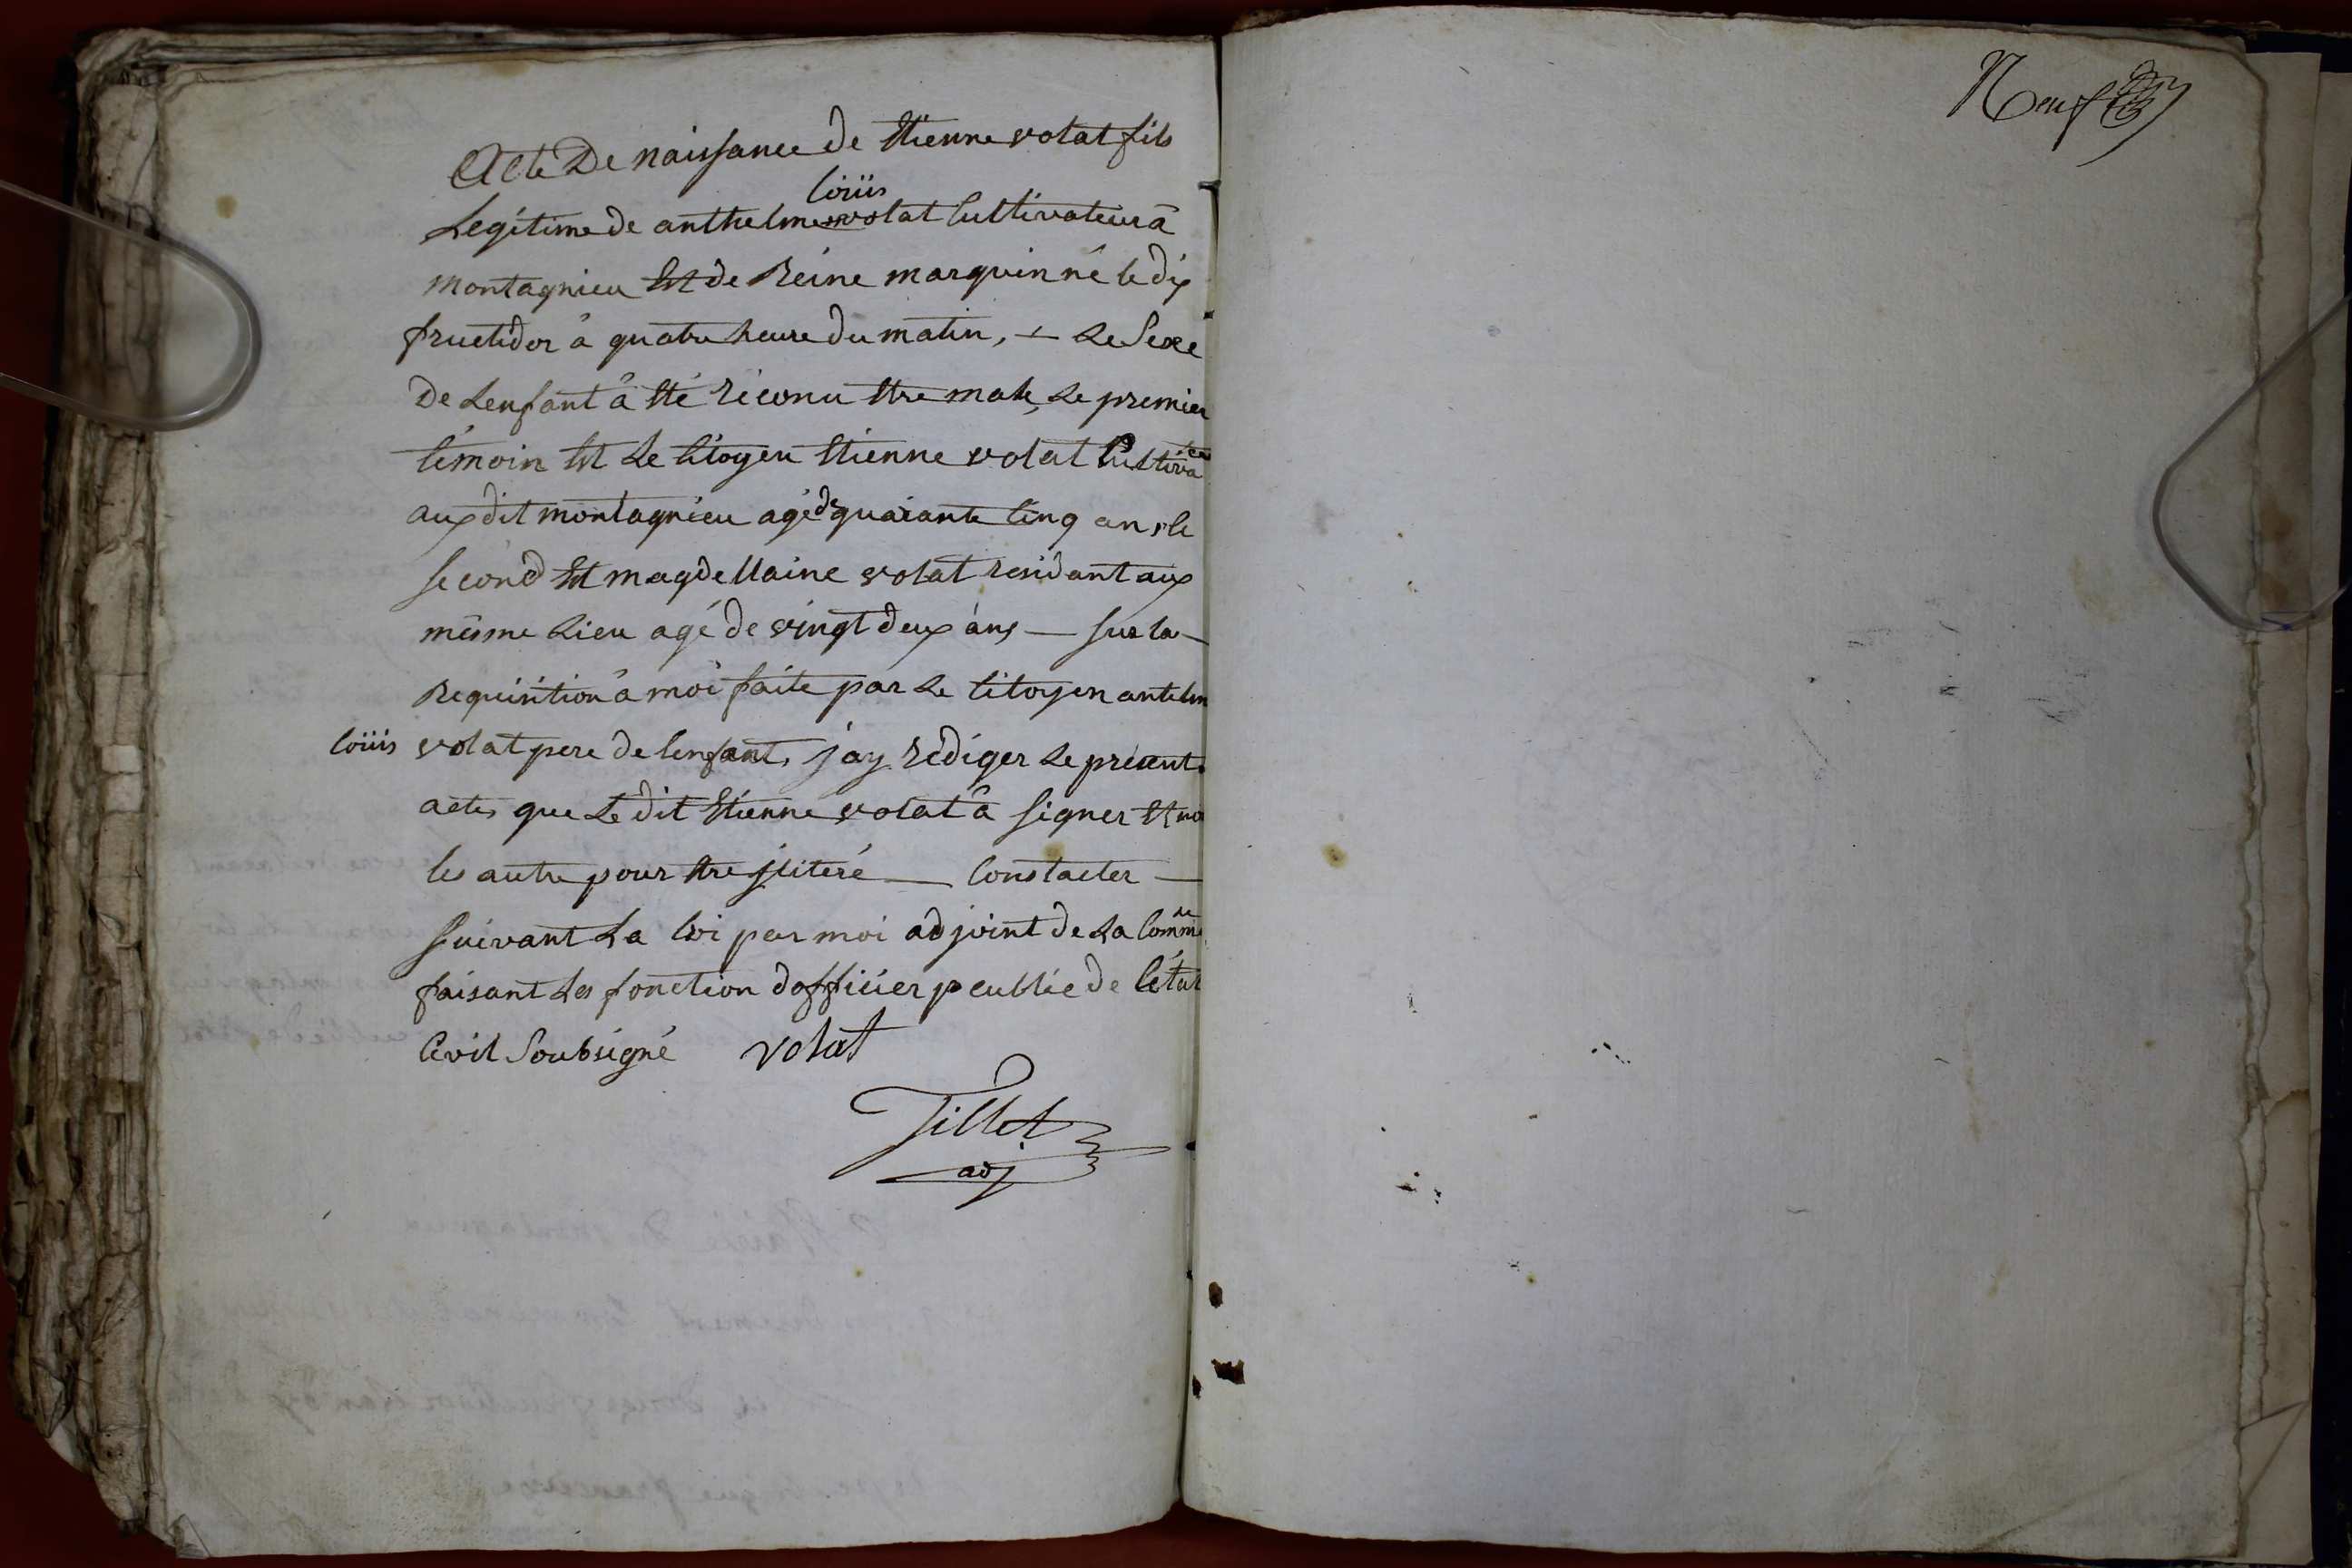 Acte De naissance de Etienne volat fils
loüis
Legitime de anthelme volat Cultivateur à
montagnieu Et de Reine marquin né le dix
fructidor à quatre heure du matin, + Le Sexe
de Lenfant à Eté réconu Etre male, Le premier
témoin Est Le Citoyen Etienne volat Cultivateu
aux dit montagnieu agé de quarante Cinq ans le
second Est magdellaine volat residant aux
même Lieu agé de vingt deux àns — sur la —
Requisition à moi faite par Le Citoyen antelm
loüis volat pere de lenfant, j'ay rédiger Le present
actes que Le dit Etienne volat à signer Et no
les autre pour Etre jliteré — Constacter —
suivant La loi par moi adjoint de La Commne
faisant Les fonction dofficier peublic de l'état
Civil Soubsigné volat
Tillet
adj
Neuf